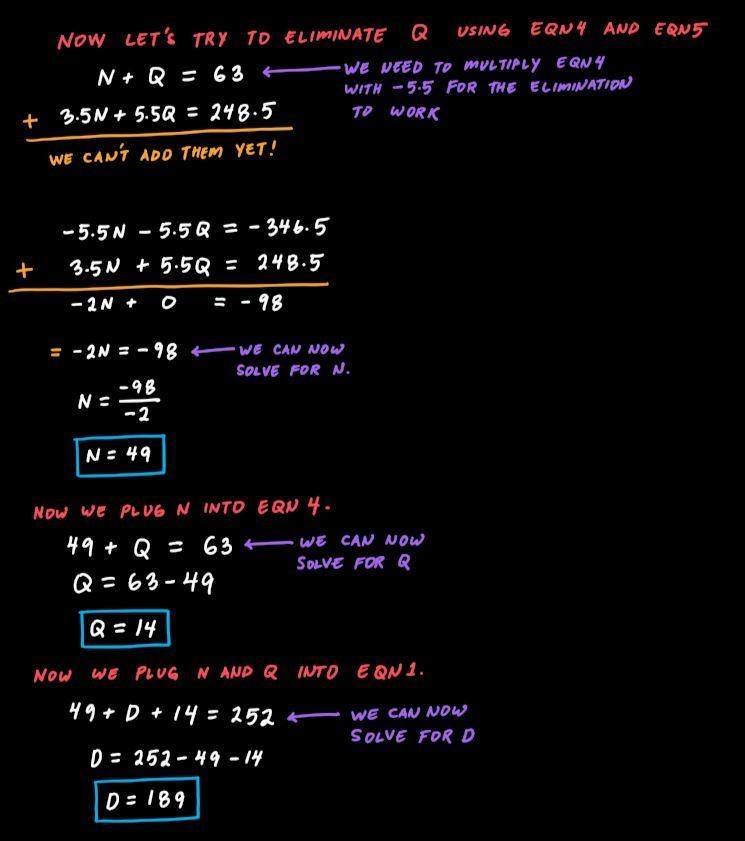 NOW LET'S TRY TO ELIMINATE Q USING EQN4 AND EQN5
N + Q = 63
WE NEED TO MULTIPLY EQN4
WITH -5.5 FOR THE ELIMINATION
TO WORK
+ 3.5N + 5.5Q = 248.5
WE CAN'T ADD THEM YET!
-5.5N - 5.5Q = -346.5
+ 3.5N + 5.5Q = 248.5
-2N + 0 = -98
= -2N = -98
WE CAN NOW
SOLVE FOR N.
N = -98/-2
N = 49
NOW WE PLUG N INTO EQN 4.
49 + Q = 63
WE CAN NOW
SOLVE FOR Q
Q = 63-49
Q = 14
NOW WE PLUG N AND Q INTO EQN1.
49 + D + 14 = 252
WE CAN NOW
SOLVE FOR D
D = 252-49-14
D = 189